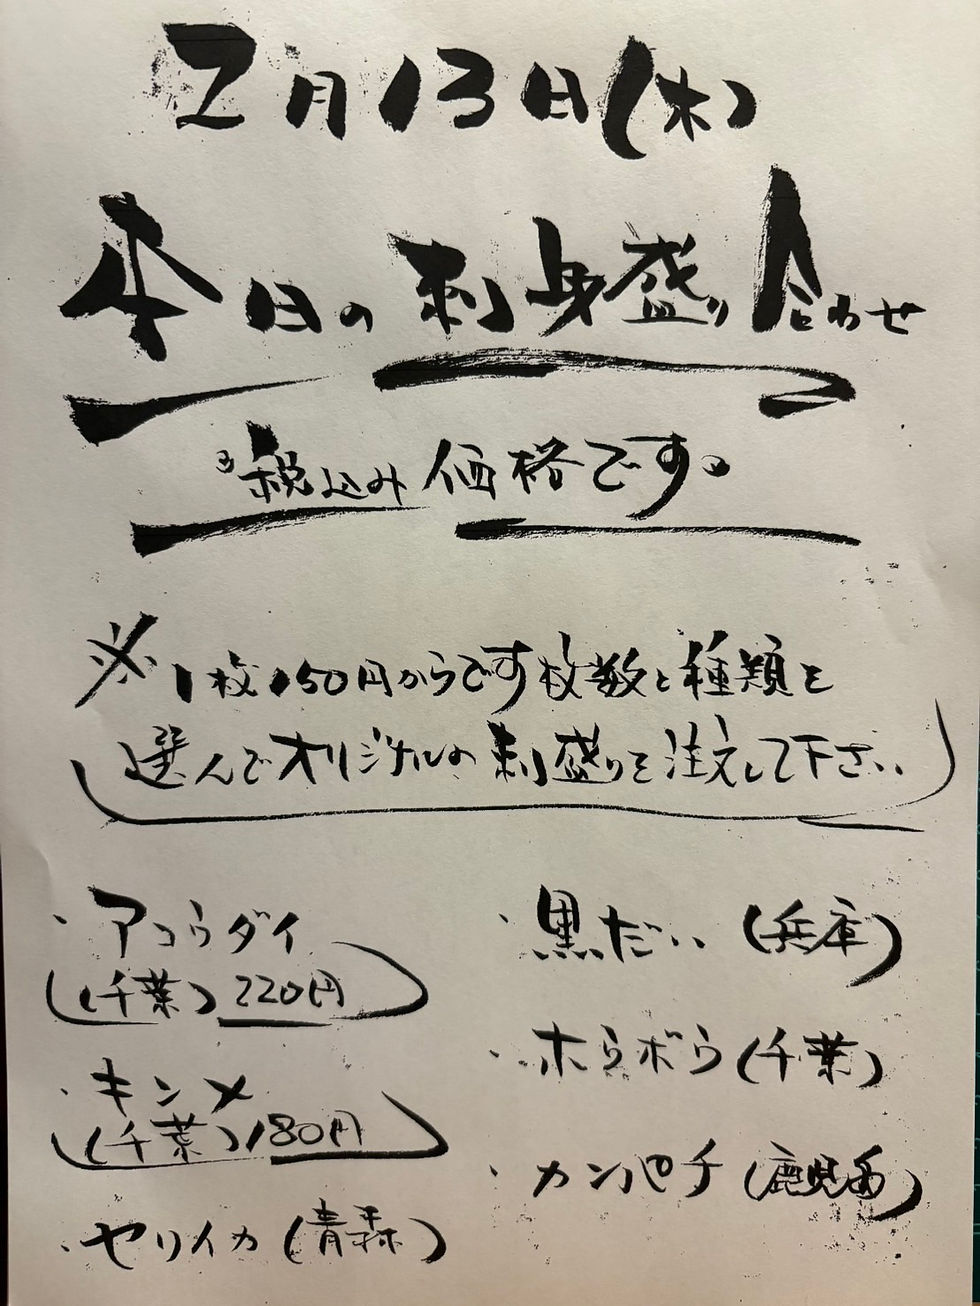 2月13日(木)
本日の刺身盛り合わせ
税込み価格です。
※1枚150円からです枚数と種類を
選んでオリジナルの刺盛りを注文して下さい
・アコウダイ
(千葉)220円
・キンメ
(千葉)180円
・ヤリイカ(青森)
・黒だい(兵庫)
・ホウボウ(千葉)
・カンパチ(鹿児島)